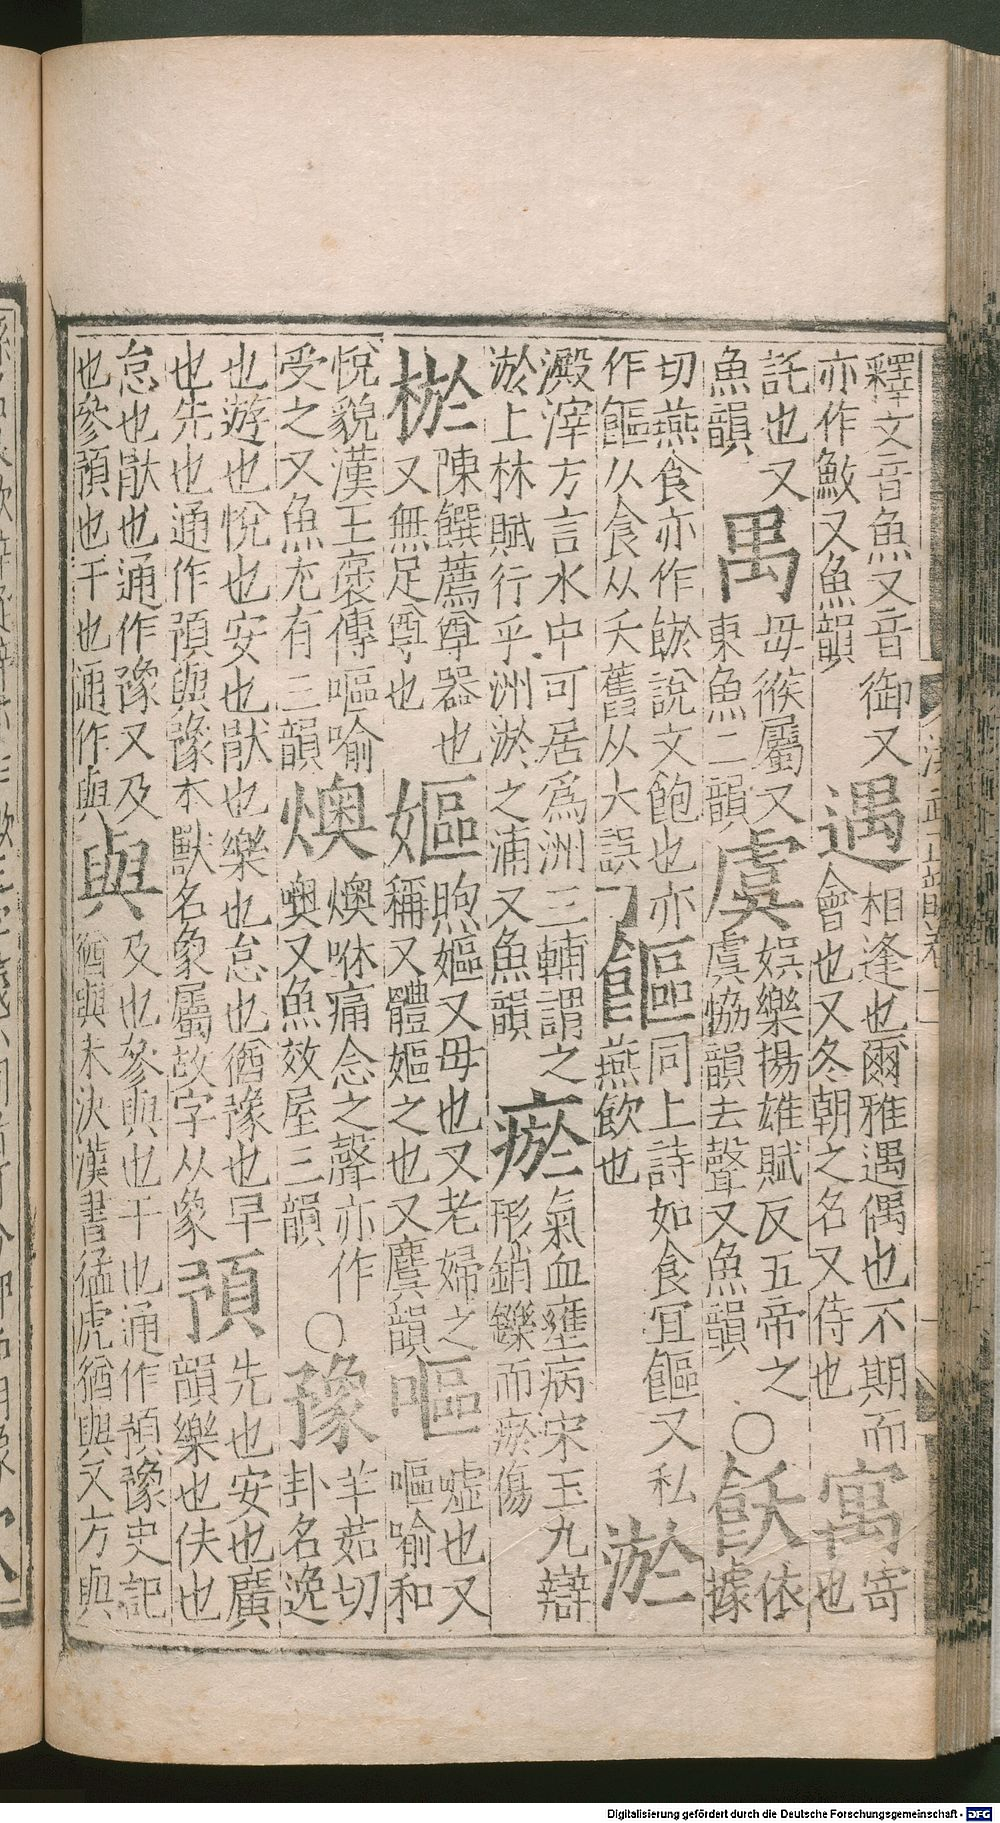 釋文音魚又音御又
亦作䱷又魚韻
遇
相逢也爾雅遇偶也不期而
會也又冬朝之名又侍也
寓
寄
也
託也又
魚韻
禺
母猴屬又
東魚二韻
虞
娯樂揚雄賦反五帝之
虞協韻去聲又魚韻
○
飫
依
據
切燕食亦作䬔說文飽也亦
作饇从食从夭舊从大誤
饇
同上詩如食宜饇又私
燕飲也
淤
澱滓方言水中可居爲洲三輔謂之
淤上林賦行乎洲淤之浦又魚韻
瘀
氣血壅病宋玉九辯
形銷鑠而瘀傷
棜
陳饌薦尊器也
又無足尊也
嫗
煦嫗又母也又老婦之
稱又體嫗之也又麌韻
嘔
嘘也又
嘔喻和
悅貌漢王襃傳嘔喻
受之又魚尤有三韻
燠
燠咻痛念之聲亦作
噢又魚效屋三韻
○
豫
羊茹切
卦名逸
也遊也悅也安也猒也樂也怠也猶豫也早
也先也通作預與豫本獸名象屬故字从象
預
先也安也廣
韻樂也佚也
怠也猒也通作豫又及
也參預也干也通作與
與
及也參與也干也通作預豫史記
猶與未決漢書猛虎猶與又方與
Digitalisierung gefördert durch die Deutsche Forschungsgemeinschaft - DFG